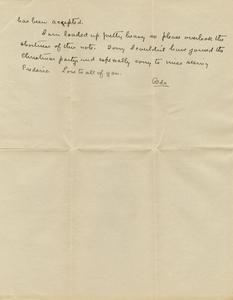 has been accepted.
I am loaded up pretty heavy so please overlook the
shortness of this note. Sorry I couldn't have joined the
Christmas party and especially sorry to miss seeing
Frederica. Love to all of you.